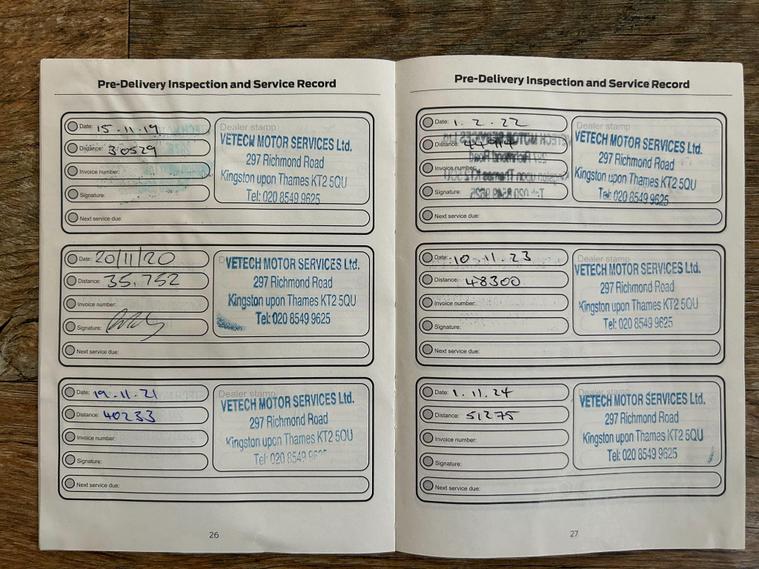 Pre-Delivery Inspection and Service Record
Date: 15.11.19
Dealer stamp
Distance: 30529
Invoice number:
Signature:
Next service due:
VETECH MOTOR SERVICES Ltd.
297 Richmond Road
Kingston upon Thames KT2 5QU
Tel: 020 8549 9625
Date: 20/11/20
Distance: 35,752
Invoice number:
Signature:
Next service due:
VETECH MOTOR SERVICES Ltd.
297 Richmond Road
Kingston upon Thames KT2 5QU
Tel: 020 8549 9625
Date: 19.11.21
Dealer stamp
Distance: 40233
Invoice number:
Signature:
Next service due:
VETECH MOTOR SERVICES Ltd.
297 Richmond Road
Kingston upon Thames KT2 5QU
Tel: 020 8549
26
Pre-Delivery Inspection and Service Record
Date: 1.2.22
Dealer stamp
Distance:
Invoice number:
Signature:
Next service due:
VETECH MOTOR SERVICES Ltd.
297 Richmond Road
Kingston upon Thames KT2 5QU
Tel: 020 8549 9625
Date: 10.11.23
Distance: 48300
Invoice number:
Signature:
Next service due:
VETECH MOTOR SERVICES Ltd.
297 Richmond Road
Kingston upon Thames KT2 5QU
Tel: 020 8549 9625
Date: 1.11.24
Dealer stamp
Distance: 51275
Invoice number:
Signature:
Next service due:
VETECH MOTOR SERVICES Ltd.
297 Richmond Road
Kingston upon Thames KT2 5QU
Tel: 020 8549 9625
27